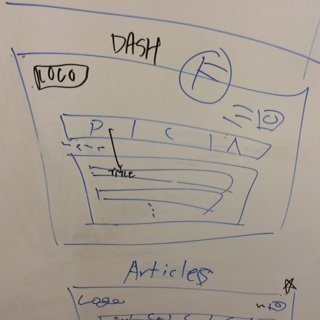 DASH
F
LOGO
P C A
TITLE
Articles
Logo